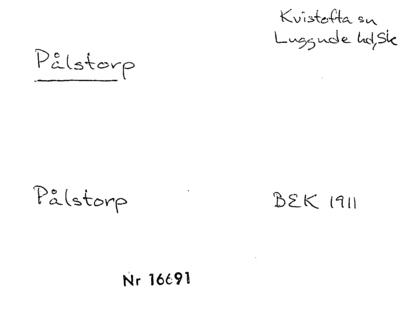 Kvistofta sn
Luggude hd, Sk
Pålstorp
Pålstorp BEK 1911
Nr 16691